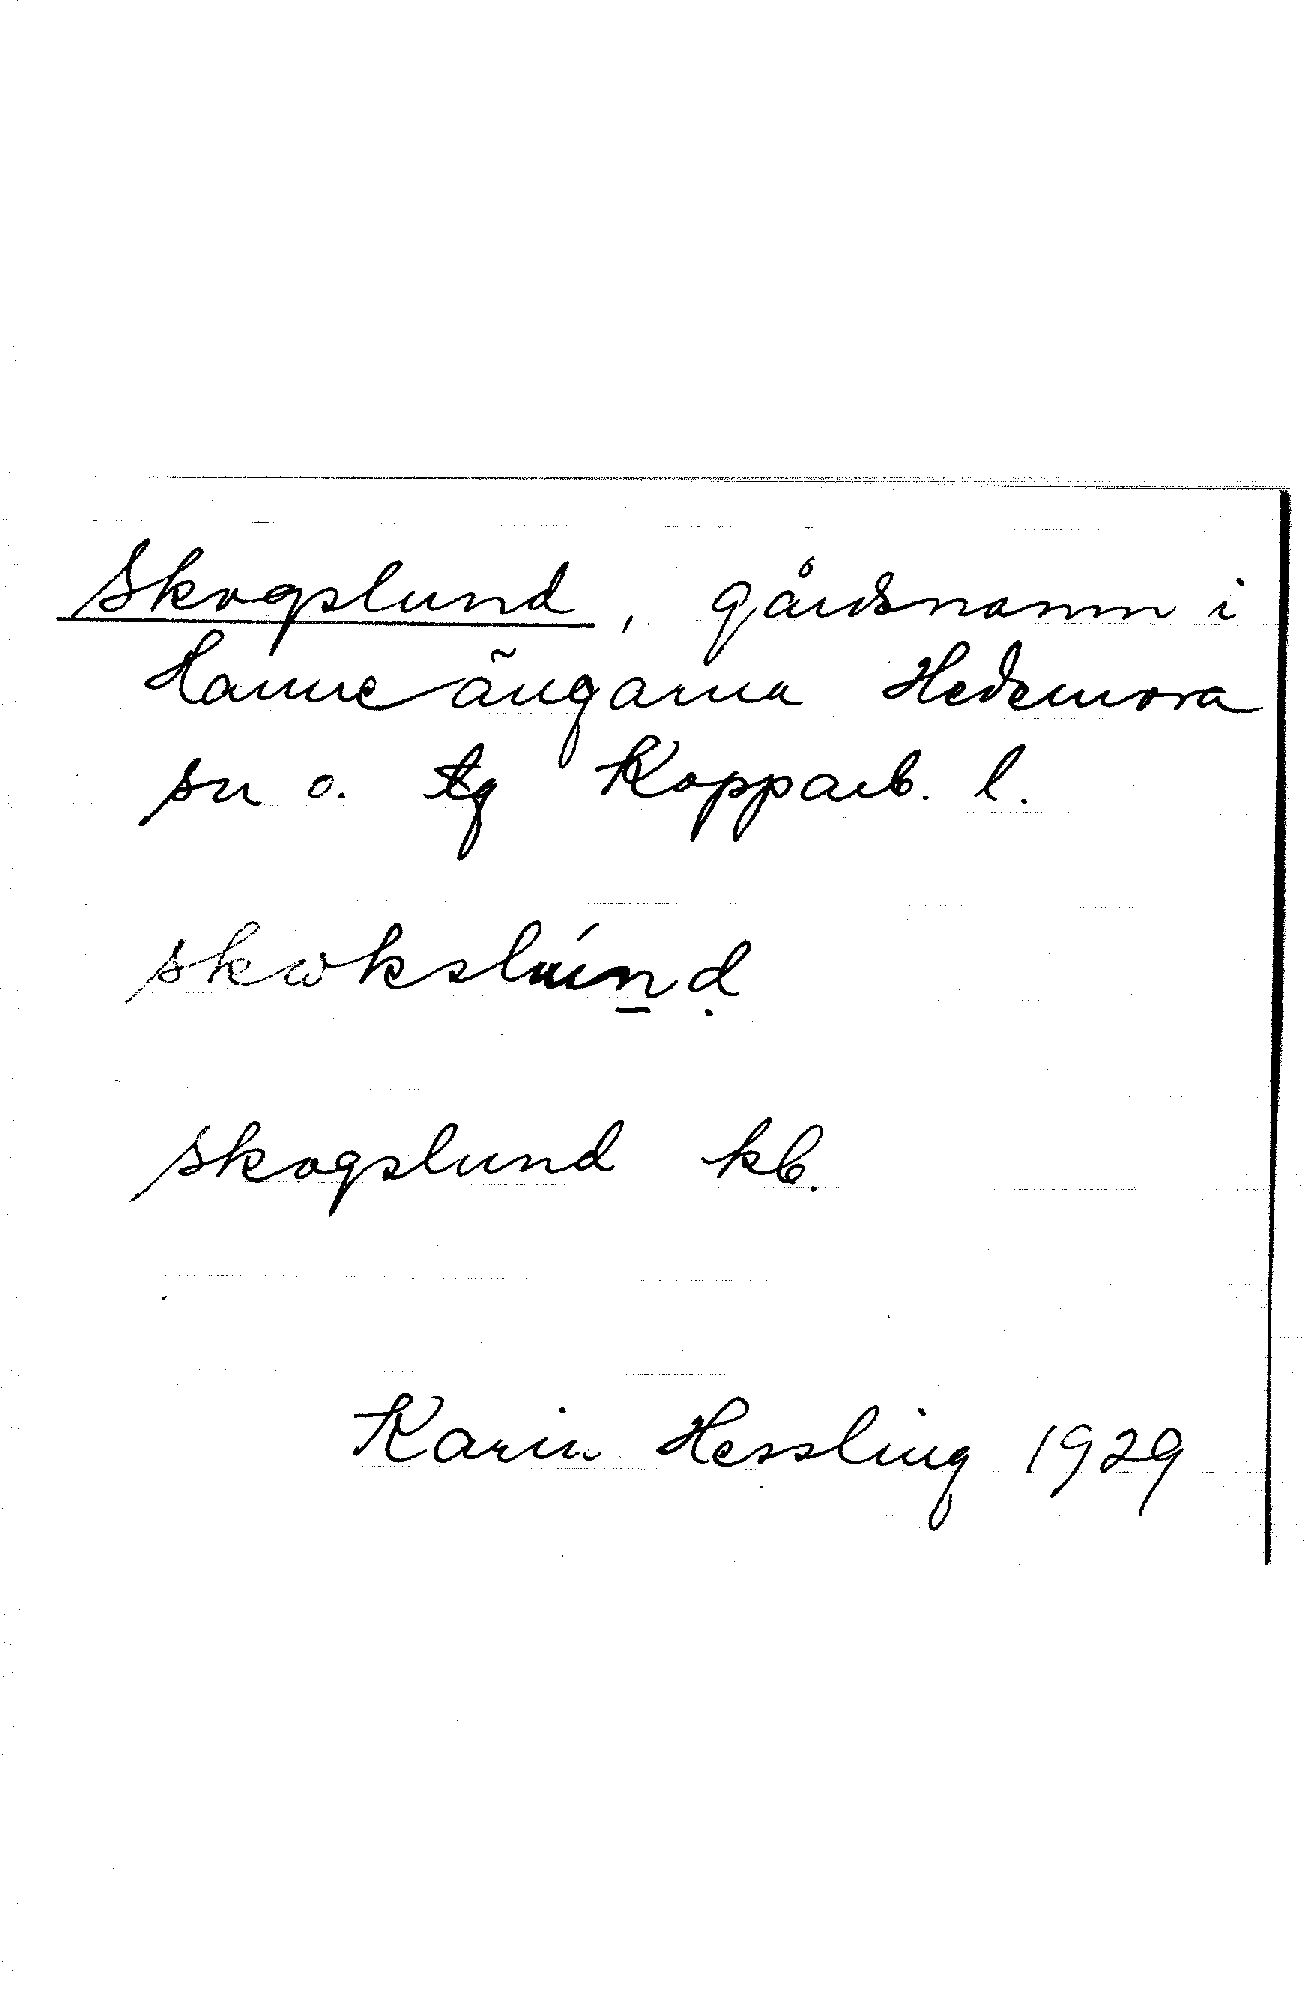 Skogslund, gårdsnamn i
Hamreängarna Hedemora
sn o. tg Kopparb. l.
skωkslúnd
Skogslund kb.
Karin Hessling 1929